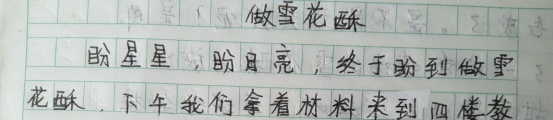 做雪花酥
盼星星，盼月亮，终于盼到做雪
花酥．下午我们拿着材料来到四楼教